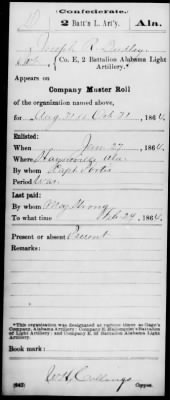 Confederate.
D 2 Batt'n L. Art'y. Ala.
Joseph R. Dudley
Co. E, 2 Battalion Alabama Light
Artillery.*
Appears on
Company Muster Roll
of the organization named above,
for Aug 31 to Oct 31, 1864.
Enlisted:
When Jan 27, 1864.
Where Haynesville Ala.
By whom Capt.
Period War
Last paid:
By whom Maj Strong
To what time Feb 24, 1864.
Present or absent Present
Remarks:
*This organization was designated at various times as Gage's
Company, Alabama Artillery; Company E, Battalion
of Light Artillery; and Company E, 2d Battalion Alabama Light
Artillery.
Book mark:
W H Collings
(642) Copyist.